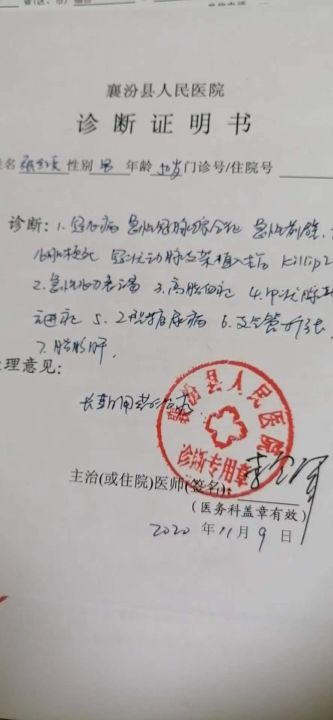 襄汾县人民医院
诊断证明书
性别 男 年龄 门诊号/住院号
诊断：1.冠心病 急性冠脉综合征 急性前壁
心肌梗死 冠状动脉支架植入术后 Killip2
2.急性心力衰竭 3.高脂血症 4.甲状腺
5.2型糖尿病 6.支气管扩张
7.脂肪肝
理意见：
长期用药治疗
襄汾县人民医院
诊断专用章
主治(或住院)医师(签名)：
(医务科盖章有效)
2020 年 11 月 9 日